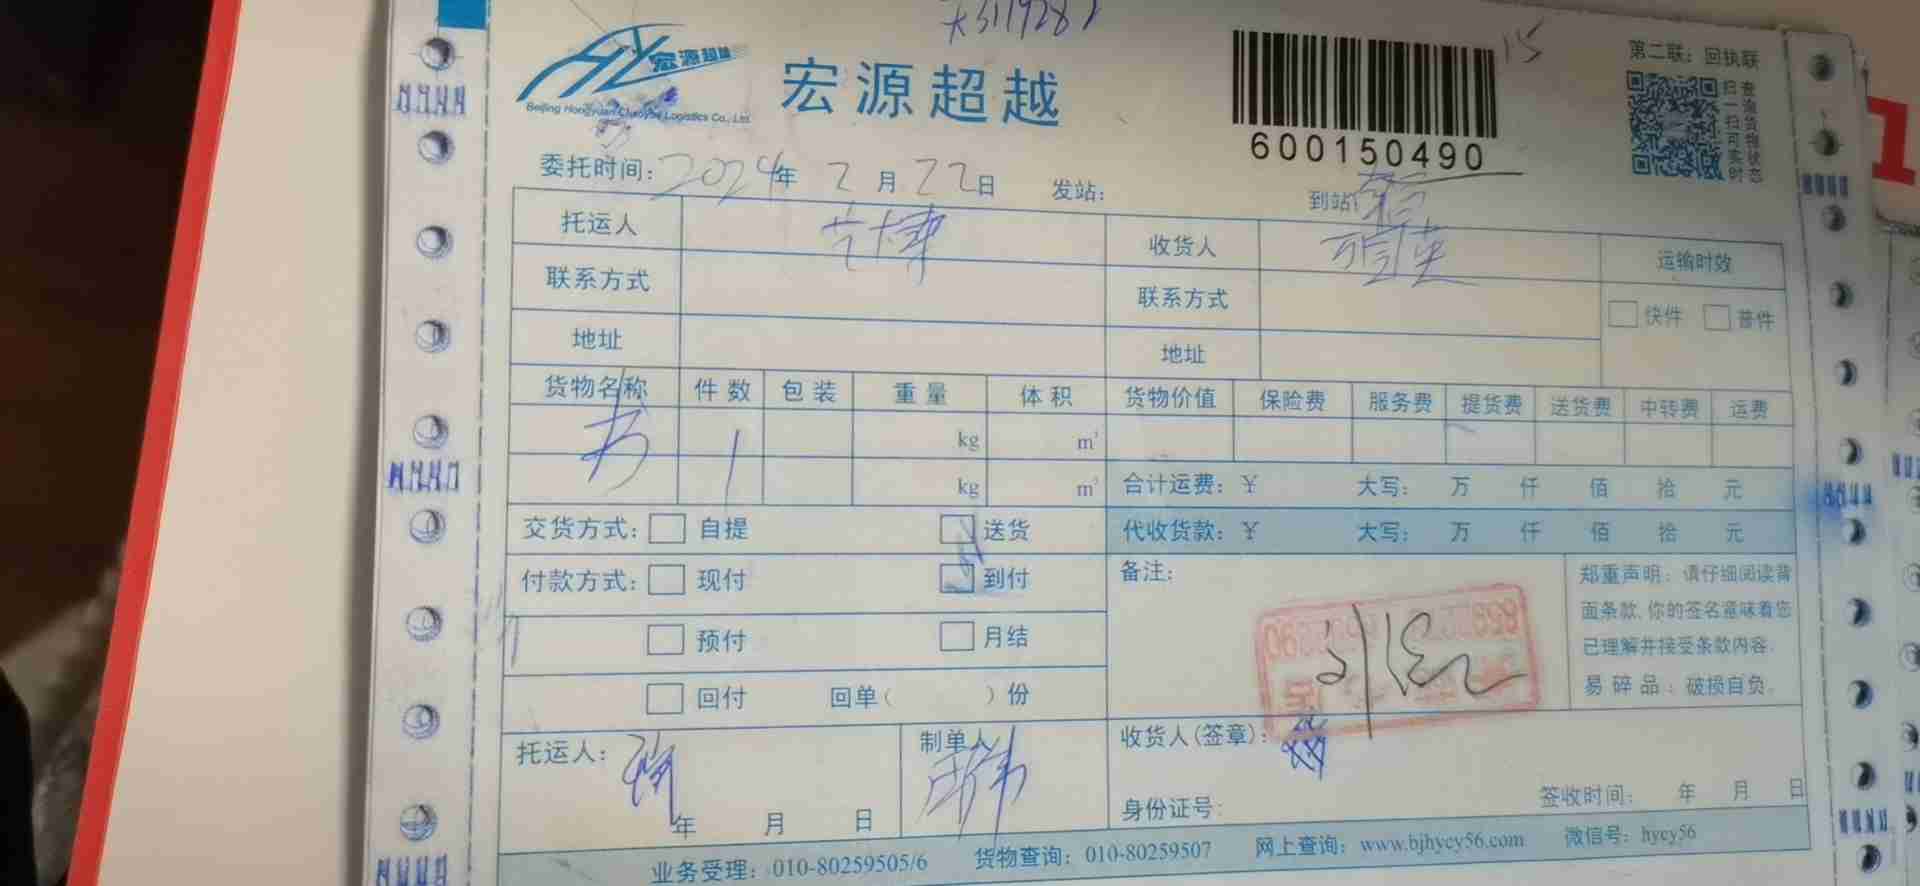 宏源超越
Beijing Hongyuan Chaoyue Logistics Co., Ltd.
宏源超越
15
600150490
第二联：回执联
扫一扫可实时
查询货物状态
委托时间：2024年2月22日 发站： 到站：
托运人 艺博 收货人 运输时效
联系方式 联系方式 快件 普件
地址 地址
货物名称 件数 包装 重量 体积 货物价值 保险费 服务费 提货费 送货费 中转费 运费
书 1 kg m³
kg m³ 合计运费：¥ 大写： 万 仟 佰 拾 元
交货方式： 自提 送货 代收货款：¥ 大写： 万 仟 佰 拾 元
付款方式： 现付 到付 备注：
预付 月结
回付 回单（ ）份
郑重声明：请仔细阅读背
面条款，你的签名意味着您
已理解并接受条款内容。
易碎品：破损自负。
托运人： 制单人 收货人(签章)：
年 月 日 身份证号： 签收时间： 年 月 日
业务受理：010-80259505/6 货物查询：010-80259507 网上查询：www.bjhycy56.com 微信号：hycy56